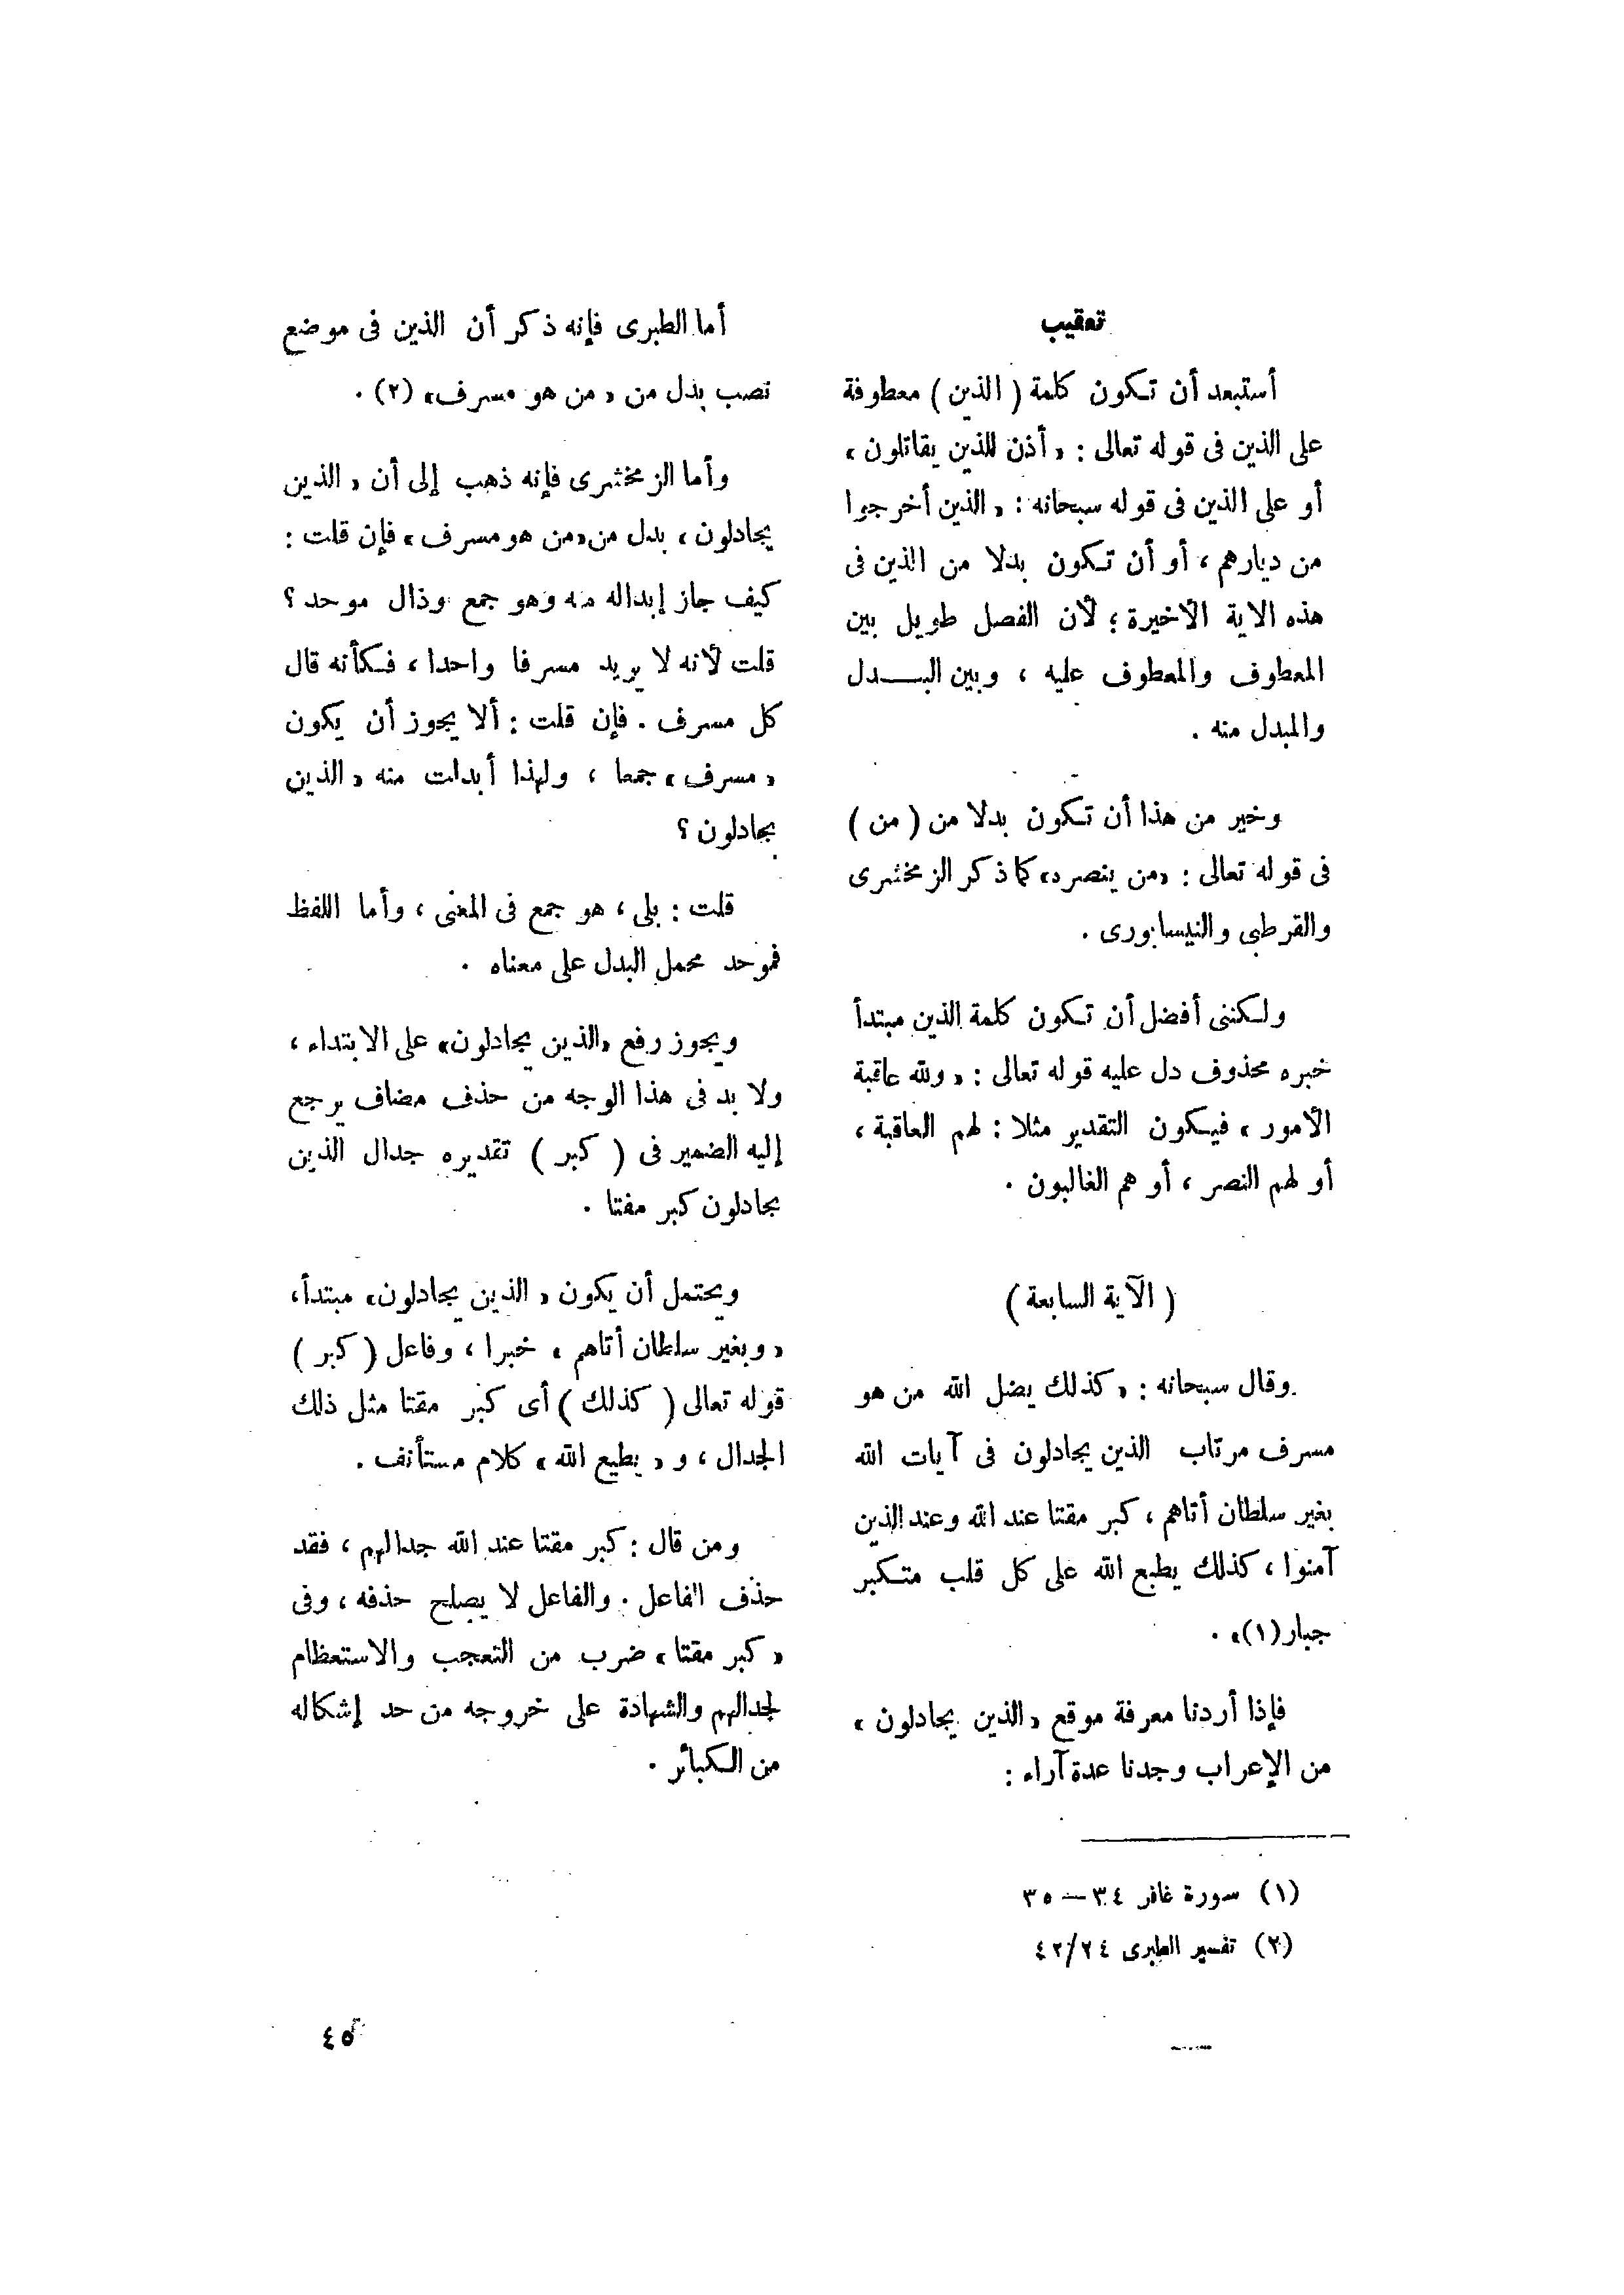 تعقيب
أستبعد أن تكون كلمة ( الذين ) معطوفة
على الذين فى قوله تعالى : « أذن للذين يقاتلون »
أو على الذين فى قوله سبحانه : « الذين أخرجوا
من ديارهم ، أو أن تكون بدلا من الذين فى
هذه الاية الأخيرة ؛ لأن الفصل طويل بين
المعطوف والمعطوف عليه ، وبين البدل
والمبدل منه .
وخير من هذا أن تكون بدلا من ( من )
فى قوله تعالى : «من ينصره» كما ذكر الزمخشرى
والقرطبى والنيسابورى .
ولكننى أفضل أن تكون كلمة الذين مبتدأ
خبره محذوف دل عليه قوله تعالى : « ولله عاقبة
الأمور » فيكون التقدير مثلا : لهم العاقبة ،
أو لهم النصر ، أو هم الغالبون .
( الآية السابعة )
وقال سبحانه : « كذلك يضل الله من هو
مسرف مرتاب الذين يجادلون فى آيات الله
بغير سلطان أتاهم ، كبر مقتا عند الله وعند الذين
آمنوا ، كذلك يطبع الله على كل قلب متكبر
جبار(١)» .
فإذا أردنا معرفة موقع «الذين يجادلون »
من الإعراب وجدنا عدة آراء :
أما الطبرى فإنه ذكر أن الذين فى موضع
نصب بدل من « من هو مسرف» (٢) .
وأما الزمخشرى فإنه ذهب إلى أن « الذين
يجادلون » بدل من «من هو مسرف» فإن قلت :
كيف جاز إبداله منه وهو جمع وذال موحد ؟
قلت لأنه لا يريد مسرفا واحدا ، فكأنه قال
كل مسرف . فإن قلت : ألا يجوز أن يكون
« مسرف» جمعا ، ولهذا أبدلت منه « الذين
يجادلون ؟
قلت : بلى ، هو جمع فى المعنى ، وأما اللفظ
فموحد محمل البدل على معناه .
ويجوز رفع «الذين يجادلون» على الابتداء ،
ولا بد فى هذا الوجه من حذف مضاف يرجع
إليه الضمير فى ( كبر ) تقديره جدال الذين
يجادلون كبر مقتا .
ويحتمل أن يكون « الذين يجادلون» مبتدأ،
« وبغير سلطان أتاهم » خبرا ، وفاعل ( كبر )
قوله تعالى ( كذلك ) أى كبر مقتا مثل ذلك
الجدال ، و « يطيع الله » كلام مستأنف .
ومن قال : كبر مقتا عند الله جدالهم ، فقد
حذف الفاعل . والفاعل لا يصلح حذفه ، وفى
« كبر مقتا » ضرب من التعجب والاستعظام
لجدالهم والشهادة على خروجه من حد إشكاله
من الكبائر .
(١) سورة غافر ٣٤ – ٣٥
(٢) تفسير الطبرى ٤٢/٢٤
٤٥